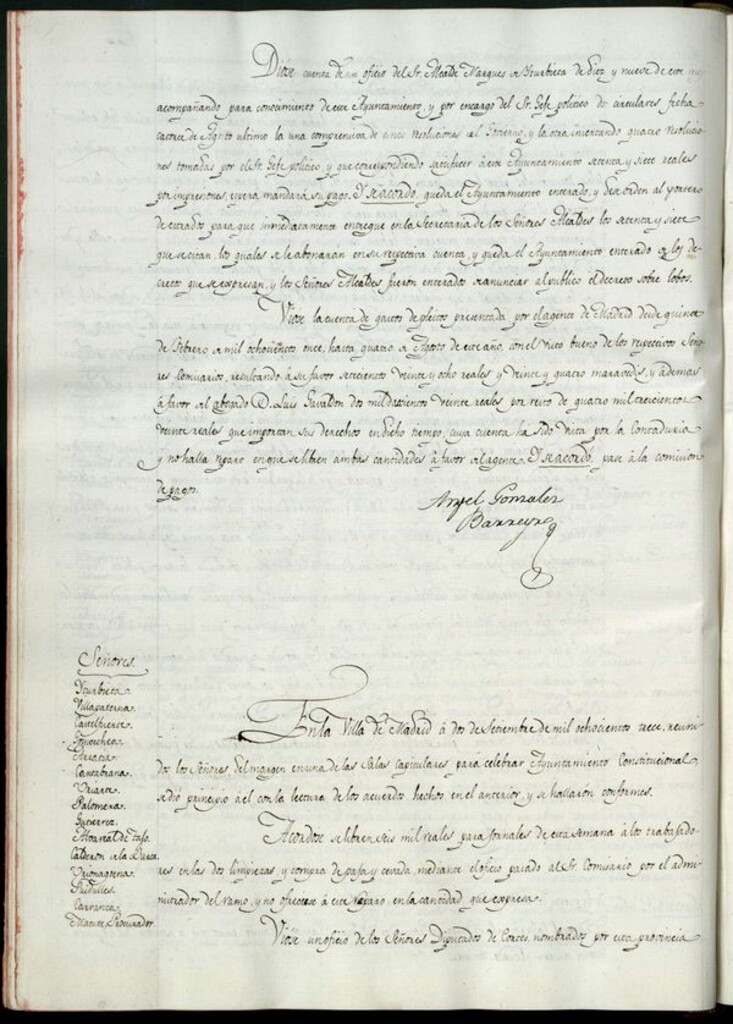 Dióse cuenta de un oficio del Sr. Alcalde Marques de Yturbieta de Diez y nueve de este
acompañando para conocimiento de este Ayuntamiento, y por encargo del Sr. Gefe politico dos circulares fecha
catorce de Agosto ultimo la una comprensiva de resoluciones del Gobierno, y la otra insertando quatro resolucio-
nes tomadas por el Sr. Gefe politico, y que correspondiendo satisfacer á este Ayuntamiento setenta y siete reales
por impresiones, espera mandará su pago. Y se acordó, queda el Ayuntamiento enterado, y dese orden al portero
de estrados para que inmediatamente entregue en la Secretaria de los Señores Alcaldes los setenta y siete
que se citan, los quales se le abonaran en su respectiva cuenta, y queda el Ayuntamiento enterado de los de-
cretos que se expresan, y los Señores Alcaldes fueron enterados de anunciar al publico el decreto sobre lobos.
Vióse la cuenta de gastos de pleitos presentada por el agente de Madrid desde quince
de Febrero de mil ochocientos once, hasta quatro de Agosto de este año, con el visto bueno de los respectivos Seño-
res Comisarios, resultando á su favor setecientos veinte y ocho reales y veinte y quatro maravedis, y ademas
á favor del abogado D. Luis Gavaldon dos mil doscientos veinte reales por resto de quatro mil trescientos
veinte reales que importan sus derechos en dicho tiempo, cuya cuenta ha sido vista por la Contaduria
y no halla reparo en que se libren ambas cantidades á favor del agente. Y se acordó, pase á la comision
de pagos.
Angel Gonzalez
Barreyro
Señores
Yturbieta.
Villapaterna.
Castelfuerte.
Goicochea.
Arratia.
Cantabrana.
Uriarte.
Palomera.
Gutierrez.
Alvareal de Tajo.
Calderon de la Barca.
Yrionagoena.
Puidulles.
Carranza.
Maeste, Procurador.
En la Villa de Madrid á dos de Setiembre de mil ochocientos trece, reuni-
dos los Señores del margen en una de las Salas Capitulares para celebrar Ayuntamiento Constitucional,
se dió principio á el con la lectura de los acuerdos hechos en el anterior, y se hallaron conformes.
Acordóse se libren seis mil reales para jornales de esta semana á los trabajado-
res en las dos limpiezas, y compra de paja y cevada, mediante el oficio pasado al Sr. Comisario por el admi-
nistrador del ramo, y no ofrecese á este reparo en la cantidad que expresa.
Vióse un oficio de los Señores Diputados de Cortes, nombrados por esta provincia